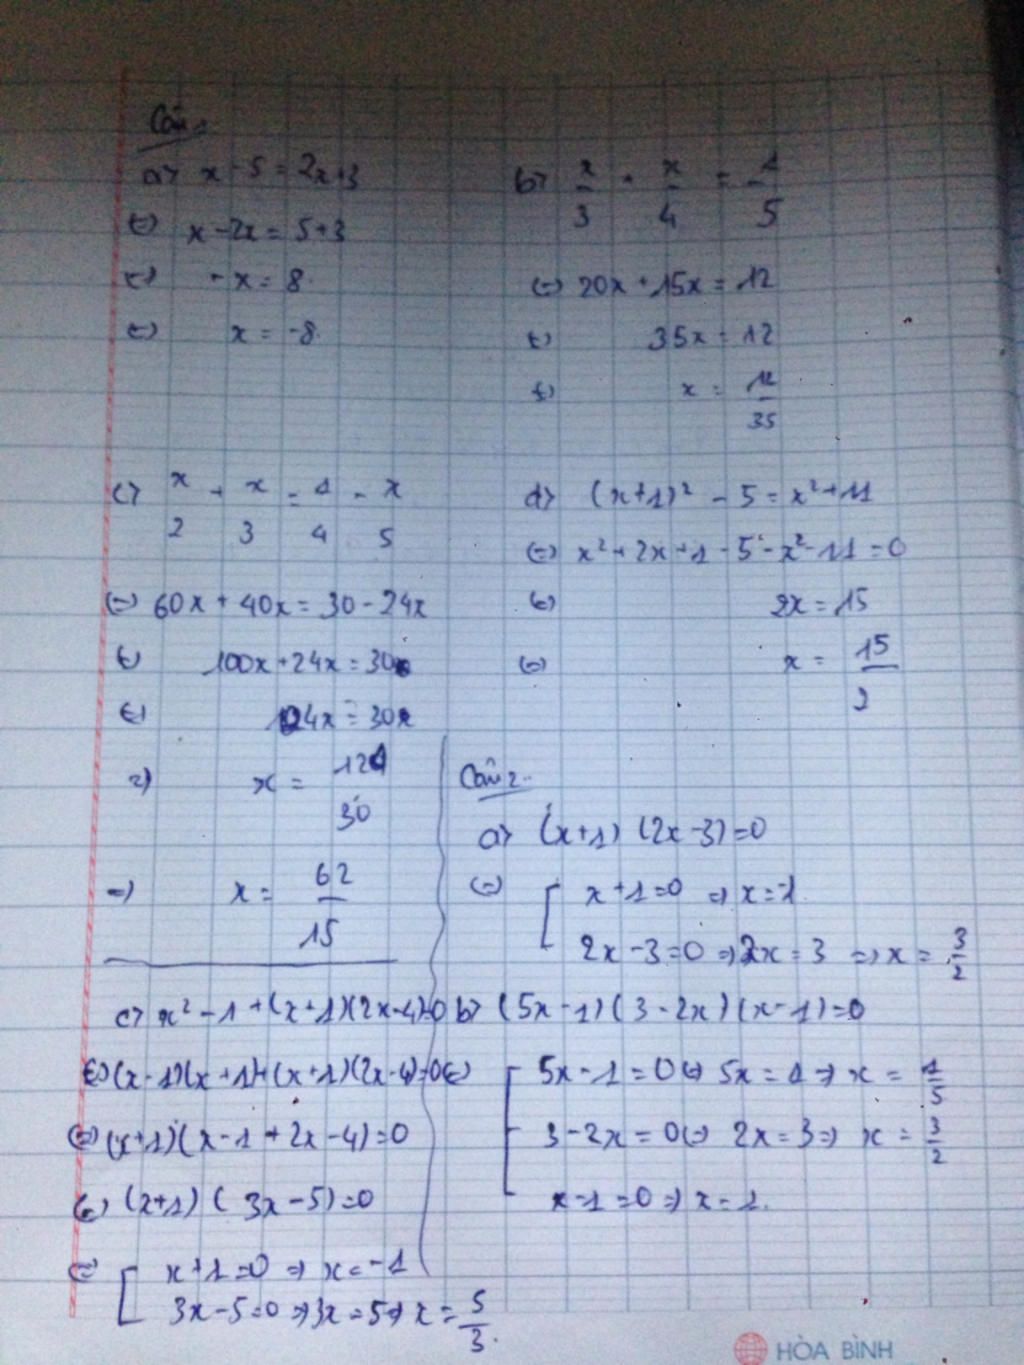 Câu 1
a> x - 5 = 2x+3
(=) x - 2x = 5+3
(=) - x = 8.
(=) x = -8
b> x/3 + x/4 = 1/5
(=) 20x + 15x = 12
(=) 35x = 12
(=) x = 12/35
c> x/2 + x/3 = 1/4 - x/5
(=) 60x + 40x = 30 - 24x
(=) 100x + 24x = 30
(=) 124x = 30
=) x = 124/30
=) x = 62/15
d> (x+1)² - 5 = x² + 11
(=) x² + 2x + 1 - 5 - x² - 11 = 0
(=) 2x = 15
(=) x = 15/2
Câu 2.
a> (x+1) (2x-3) = 0
(=) [ x+1=0 => x=-1
2x-3=0 => 2x=3 => x= 3/2
b> (5x-1) (3-2x) (x-1) = 0
(=) [ 5x-1=0 (=) 5x=1 => x= 1/5
3-2x=0 (=) 2x=3 => x= 3/2
x-1=0 => x=1.
c> x² - 1 + (x+1)(2x-4)=0
(=) (x-1)(x+1)+(x+1)(2x-4)=0
(=) (x+1)(x-1+2x-4)=0
(=) (x+1) (3x-5)=0
(=) [ x+1=0 => x=-1
3x-5=0 => 3x=5 => x= 5/3.
HÒA BÌNH